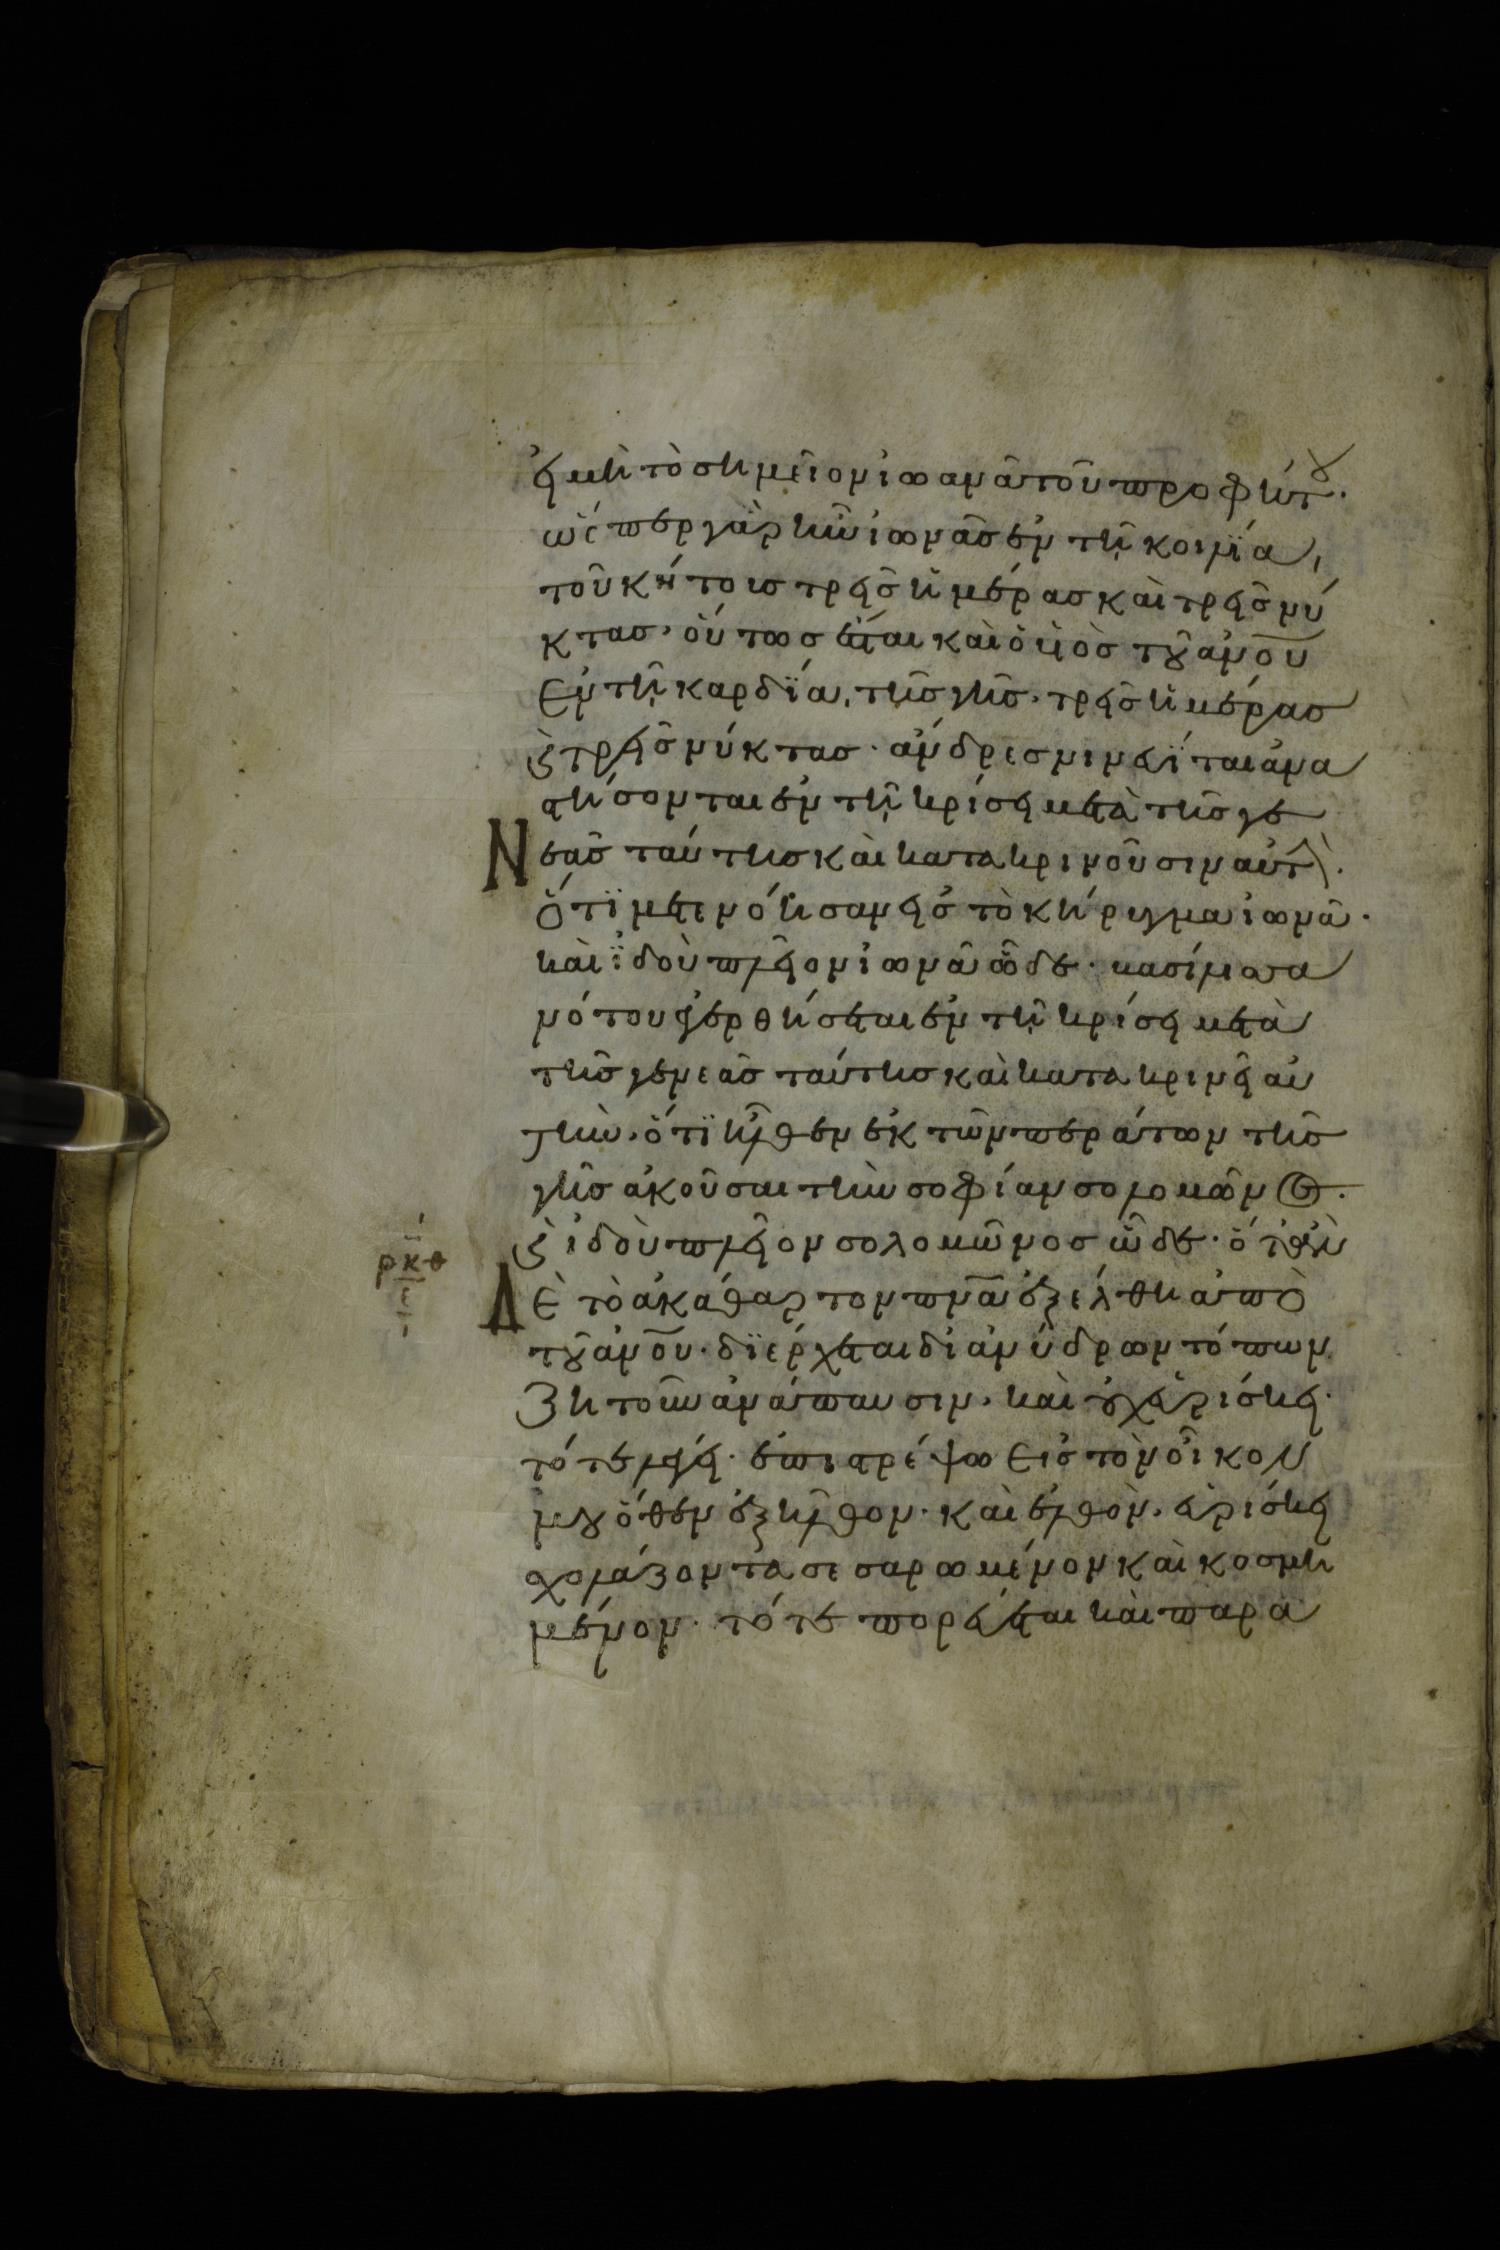 εἰ μὴ τὸ σημεῖον ἰωανᾶ τοῦ προφήτου.
ὥσπερ γὰρ ἦν ἰωνᾶσ ἐν τῆ κοιλΐα,
τοῦ κήτοισ τρεῖσ ἡμέρασ καὶ τρεῖσ νύ
κτασ, οὕτωσ ἔσται καὶ ὁ ϋἱὸσ τοῦ ἀν̅ο̅υ̅
ἐν τῆ καρδΐα, τῆσ γῆσ, τρεῖσ ἡμέρασ
ϗ τρεῖσ νύκτασ. ἄνδρεσ νινευΐται ἀνα
στήσονται ἐν τῆ κρίσει μετὰ τῆσ γε
νεᾶσ ταύτησ καὶ κατακρινοῦσιν αὐτὴν.
ὅτϊ μετενόησαν εἰσ τὸ κήριγμα ἰωνᾶ.
καὶ ϊδοὺ πλεῖον ἰωνᾶ ὧδε. βασίλισσα
νότου ἐγερθήσεται ἐν τῆ κρίσει μετὰ
τῆσ γενεᾶσ ταύτησ καὶ κατακρινεῖ αὐ
τὴν, ὅτϊ ἦλθεν ἐκ τῶν περάτων τῆσ
γῆσ ἀκοῦσαι τὴν σοφίαν σολομῶνος.
ϗ ἰδοὺ πλεῖον σολομῶνοσ ὧδε. ὅταν
ρκθ
Δὲ τὸ ἀκάθαρτον πν̅α̅ ἐξέλθη ἀπὸ
τοῦ ἀν̅ο̅υ̅. δϊέρχεται δι ἀνύδρων τόπων
ζητοῦν ἀνάπαυσιν, καὶ οὐχ εὑρίσκει.
τότε λέγει. ἐπιστρέψω εἰσ τὸν οἶκον
μου ὅθεν ἐξῆλθον. καὶ ἐλθὸν, εὑρίσκει
σχολάζοντα σεσαρωμένον καὶ κοσμη
μένον. τότε πορεύεται καὶ παρα